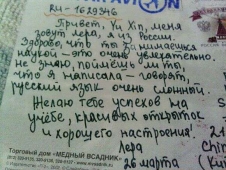 RU-1629346
Привет, Yu Xin, меня
зовут Лера, я из России.
Здорово, что ты занимаешься
наукой - это очень увлекательно.
Не знаю, поймёшь ли ты,
что я написала - говорят,
русский язык очень сложный.
Желаю тебе успехов на
учёбе, красивых открыток
и хорошего настроения!
Лера
26 марта
Торговый дом «МЕДНЫЙ ВСАДНИК»